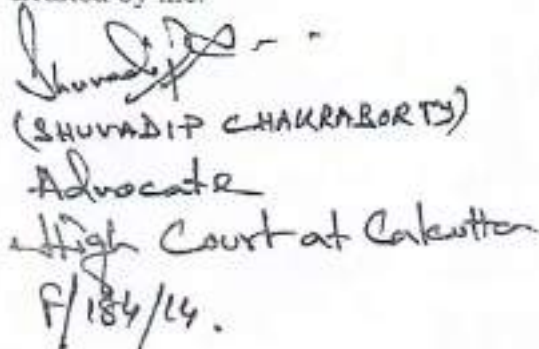 by me.
Shuvadip
(SHUVADIP CHAKRABORTY)
Advocate
High Court at Calcutta
F/184/14.